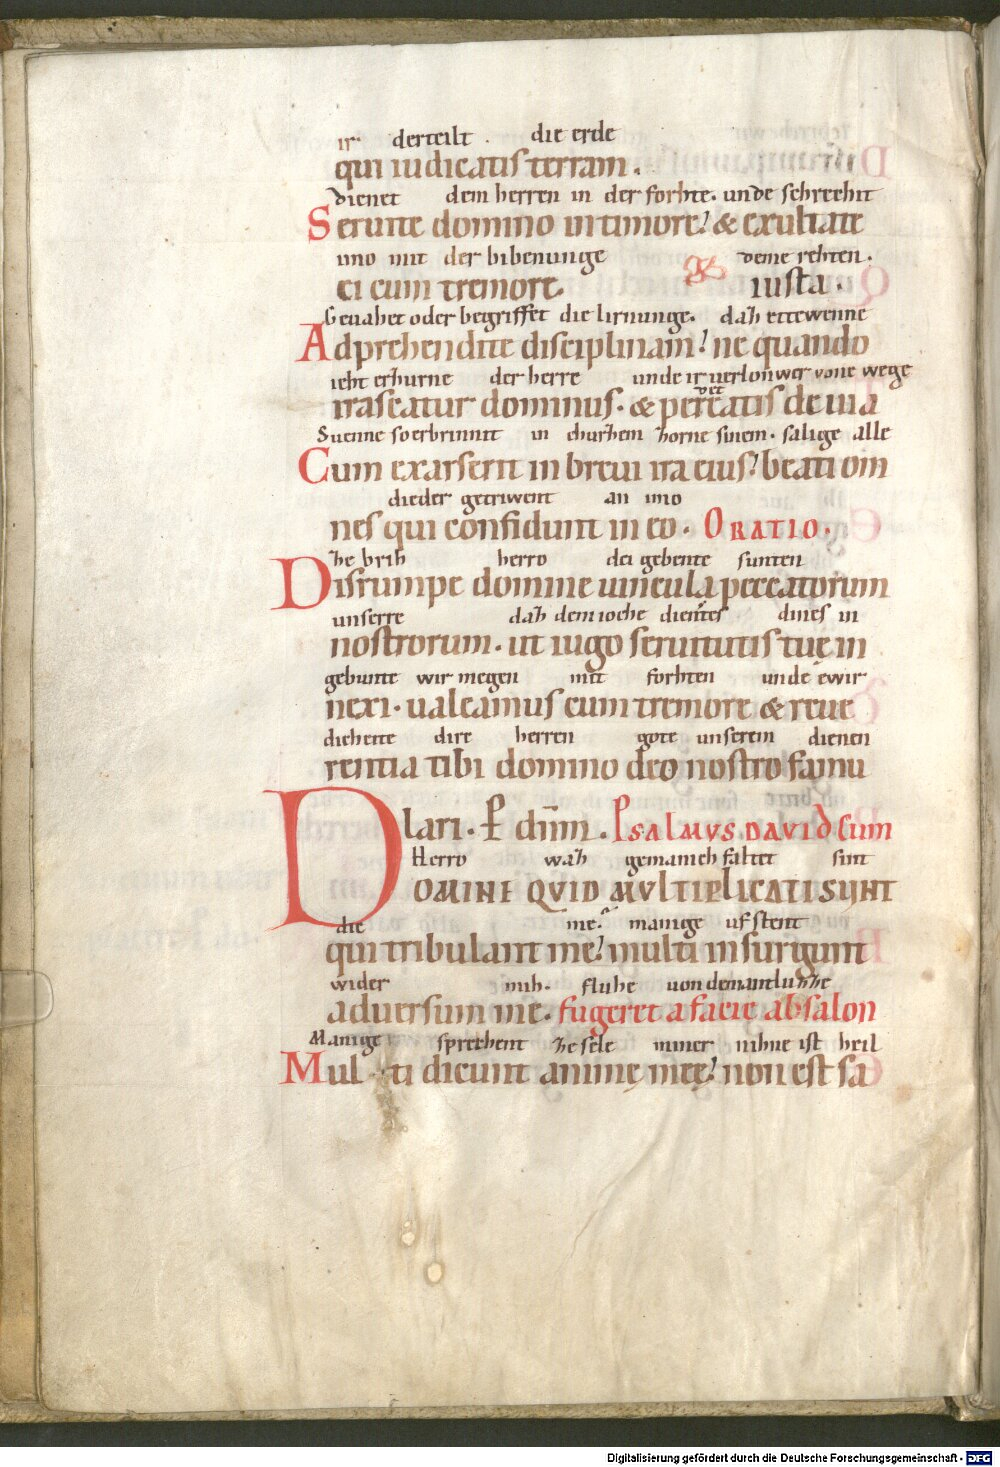 ir derteilt . die erde
qui iudicatis terram .
dienet dem herren in der forhte . unde schrechit
Seruite domino in timore? & exultate
imo mit der bibenunge deme rehten .
ei cum tremore . iusta .
Geuahet oder begriffet die lirnunge . daz ettewenne
Adprehendite disciplinam? ne quando
ieht erzurne der herre unde ir uerlorn wer vone wege
irascatur dominus . & pereatis de uia
Suenne so erbrinnit in churzem zorne sinem . salige alle
Cum exarserit in breui ira eius? beati om
dieder getriwent an imo
nes qui confidunt in eo . ORATIO .
Ze brih herro dei gebente sunten
Disrumpe domine uincula peccatorum
unserre daz dem ioche dientes dines in
nostrorum . ut iugo seruitutis tuę in
gebunte wir megen mit forhten unde ewir
nexi . ualeamus cum tremore & reue
dichette dire herren gote unserem dienen
rentia tibi domino deo nostro famu
lari . P dnm . PSALMVS DAVID Cum
Herro waz gemanich faltet sint
DOMINE QVID MVLTIPLICATI SVNT
die me . manige uf stent
qui tribulant me? multi insurgunt
wider mih . fluhe uon dem antluzze
aduersum me . fugeret a facie absalon
Manige sprechent ze sele miner nihne ist heil
Multi dicunt animę meę? non est sa
Digitalisierung gefördert durch die Deutsche Forschungsgemeinschaft - DFG